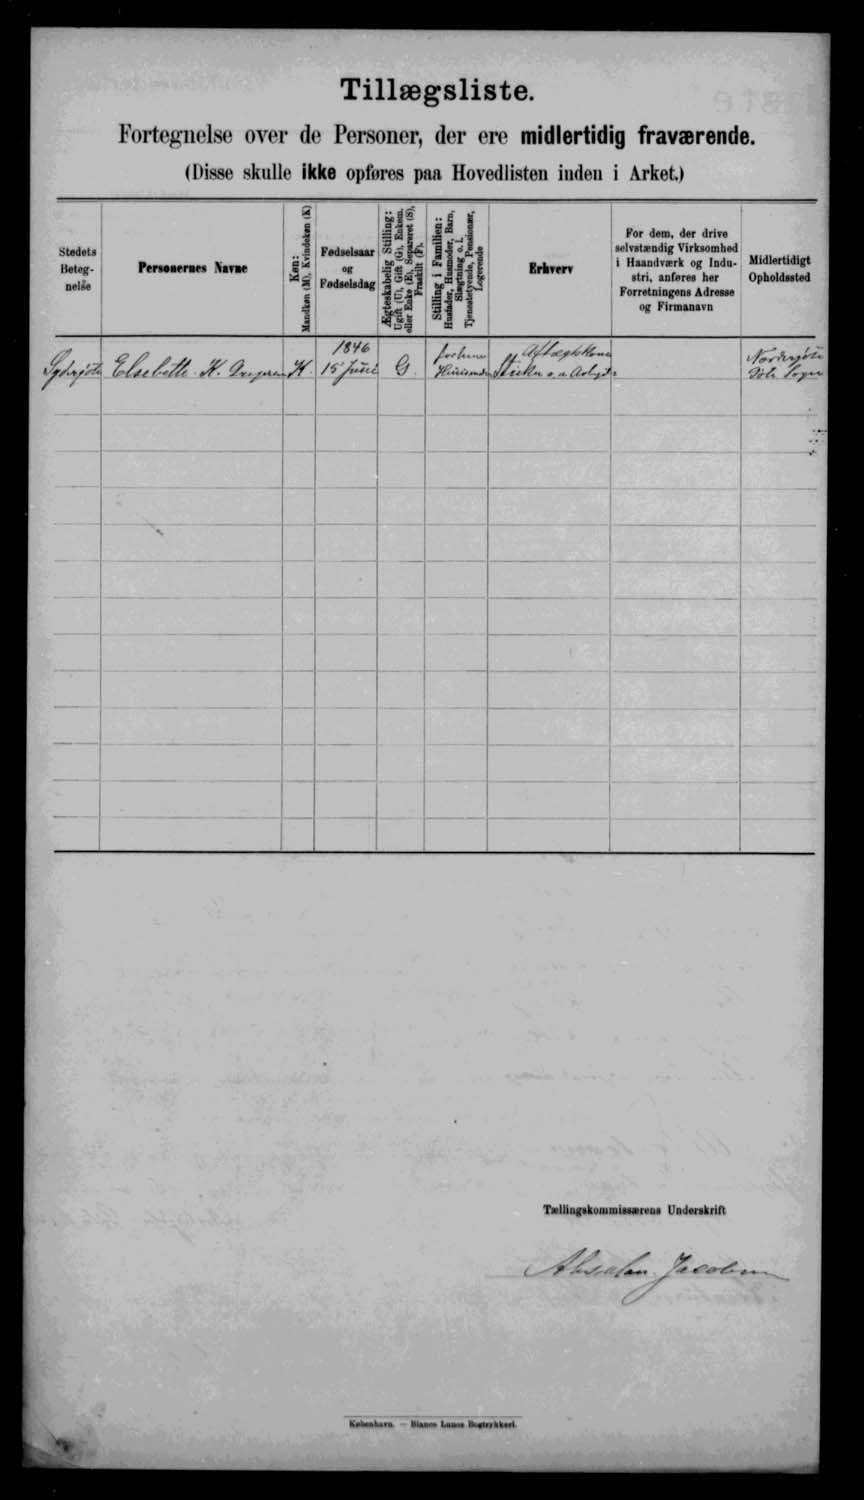 Tillægsliste.
Fortegnelse over de Personer, der ere midlertidig fraværende.
(Disse skulle ikke opføres paa Hovedlisten inden i Arket.)
Stedets
Beteg-
nelse
Personernes Navne
Køn:
Mandkøn (M), Kvindekøn (K)
Fødselsaar
og
Fødselsdag
Ægteskabelig Stilling:
Ugift (U), Gift (G), Enkem.
eller Enke (E), Separeret (S),
Fraskilt (F).
Stilling i Familien:
Husfader, Husmoder, Barn,
Slægtning o. l.
Tjenestetyende, Pensionær,
Logerende
Erhverv
For dem, der drive
selvstændig Virksomhed
i Haandværk og Indu-
stri, anføres her
Forretningens Adresse
og Firmanavn
Midlertidigt
Opholdssted
Elsebette K.
K.
1846
15 Juni
G.
Aftægtskone
Sogn
Tællingskommissærens Underskrift
Absalon Jacobsen
København. — Bianco Lunos Bogtrykkeri.